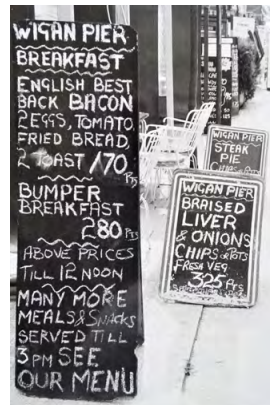 WIGAN PIER
BREAKFAST
ENGLISH BEST
BACK BACON
2 EGGS, TOMATO,
FRIED BREAD,
2 TOAST 170 Pts
BUMPER
BREAKFAST
280 Pts
ABOVE PRICES
TILL 12 NOON
MANY MORE
MEALS & SNACKS
SERVED TILL
3 PM SEE
OUR MENU
WIGAN PIER
STEAK
PIE
CHIPS
WIGAN PIER
BRAISED
LIVER
& ONIONS
CHIPS or POTS
FRESH VEG
325 Pts